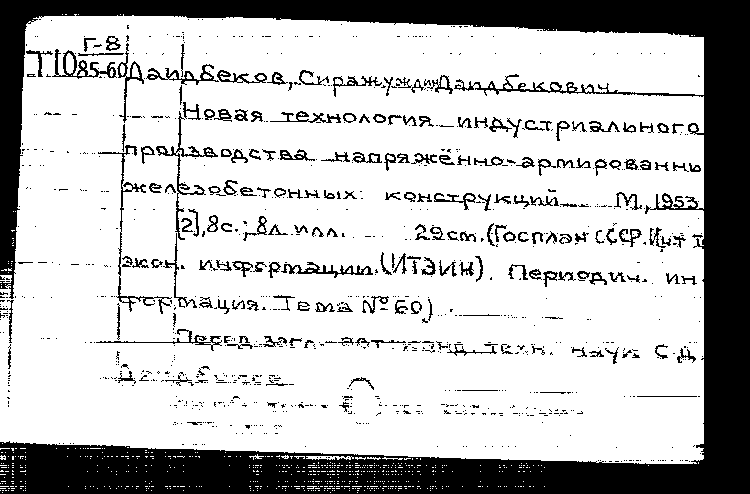 Г-8
Т10 85-60
Даидбеков, Сиражуждин Даидбекович.
Новая технология индустриального
производства напряжённо-армированны
железобетонных конструкций М., 1953
[2], 8с.; 8л илл. 29см. (Госплан СССР. Инт т
экон. информации. (ИТЭИН). Периодич. ин
формация. Тема № 60).
Перед загл. авт: канд. техн. наук С.Д.
Даидбеков